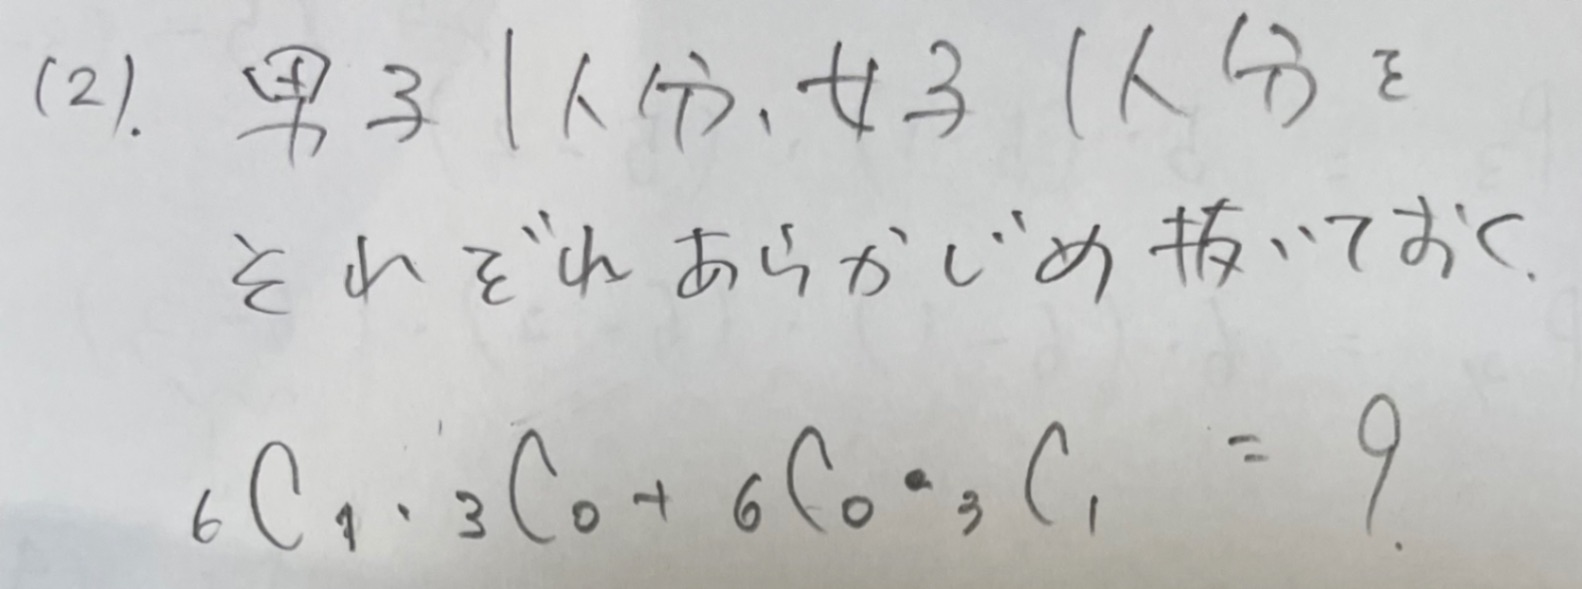 (2). 男子1人分、女子1人分を
それぞれあらかじめ抜いておく.
₆C₁・₃C₀+₆C₀・₃C₁ = 9.